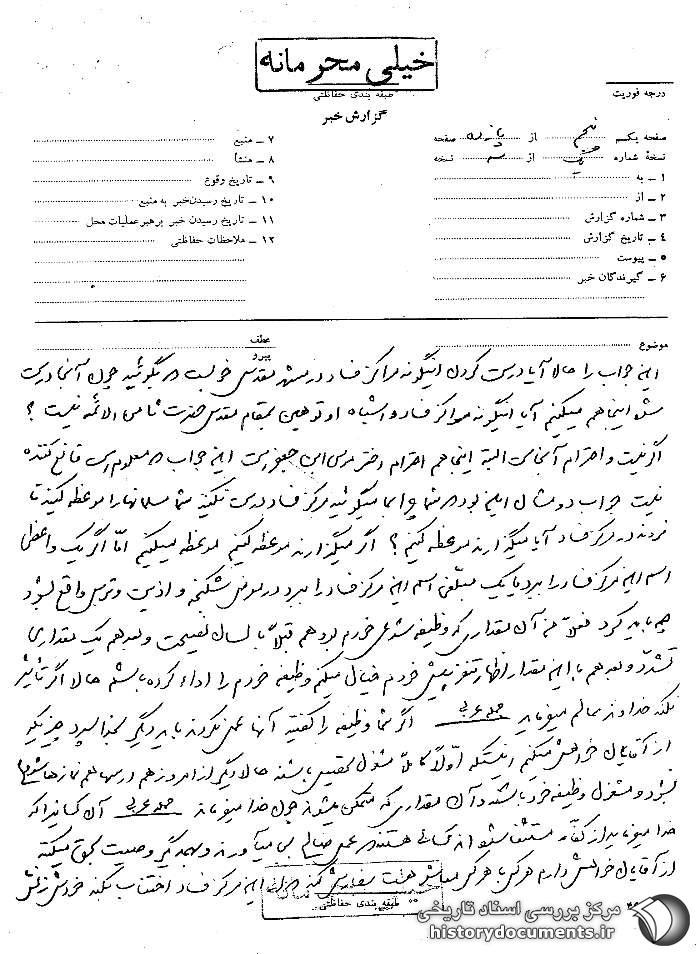 خیلی محرمانه
طبقه بندی حفاظتی
گزارش خبر
درجه فوریت
صفحه یکم پنجم از پانزده صفحه
نسخهٔ شماره از سه نسخه
۱ ــ به
۲ ــ از
۳ ــ شماره گزارش
۴ ــ تاریخ گزارش
۵ ــ پیوست
۶ ــ گیرندگان خبر
۷ ــ منبع
۸ ــ منشأ
۹ ــ تاریخ وقوع
۱۰ ــ تاریخ رسیدن خبر به منبع
۱۱ ــ تاریخ رسیدن خبر برهبر عملیات محل
۱۲ ــ ملاحظات حفاظتی
موضوع
عطف
پیرو
این جواب را حالا آیا درست کردن اینگونه مراکز فساد در مشهد مقدس خوب است نگوئید چون آنجا درست
شده اینجا هم میکنیم آیا اینگونه مراکز فساد و اشباه او توهین بمقام مقدس حضرت ثامن الائمه نیست ؟
اگر نیست و احترام آنجاست البته اینجا هم احترام دختر موسی ابن جعفر است این جواب معلوم است قانع کننده
نیست جواب دو مثال این بود شما چرا میگوئید مرکز فساد درست نکنید شما مسلمانها را موعظه کنید تا
نروند در مرکز فساد آیا میگذارند موعظه کنیم ؟ اگر میگذارند موعظه کنیم موعظه میکنیم امّا اگر یک واعظی
اسم این مرکز فساد را برد یا یک مبلّغی اسم این مرکز فساد را برد در معرض شکنجه و اذیت و ترس واقع بشود
چه باید کرد فعلاً من آن مقداری که وظیفه شرعی خودم بود هم قبلاً با لسان نصیحت و بعد هم یک مقداری
تشدّد و بعد هم با این مقدار اظهار تنفر پیش خودم خیال میکنم وظیفه خودم را اداء کرده باشم حالا اگر تأثیر
نکند خداوند عالم میفرماید جمله عربی اگر شما وظیفه را گفتید آنها عمل نکردند باید دیگر بخدا سپرد چیزیکه
از آقایان خواهش میکنم اینستکه اوّلاً کاملاً مشغول تحصیل باشند حالا دیگر از امروز هم درسها هم نمازها شروع
بشود و مشغول وظیفه خود باشند و آن مقداری که متمکن میشوند چون خدا میفرماید جمله عربی آن کسانی را که
خدا میفرماید از مستثنا شده از کسانی هستند عمل صالح می‌آورند و بهمدیگر وصیت بحق میکنند
از آقایان خواهش دارم هر کس با هر کس معاشر هست سفارش کند از این مرکز فساد اجتناب بکند خودش زنش
طبقه بندی حفاظتی
مرکز بررسی اسناد تاریخی
historydocuments.ir